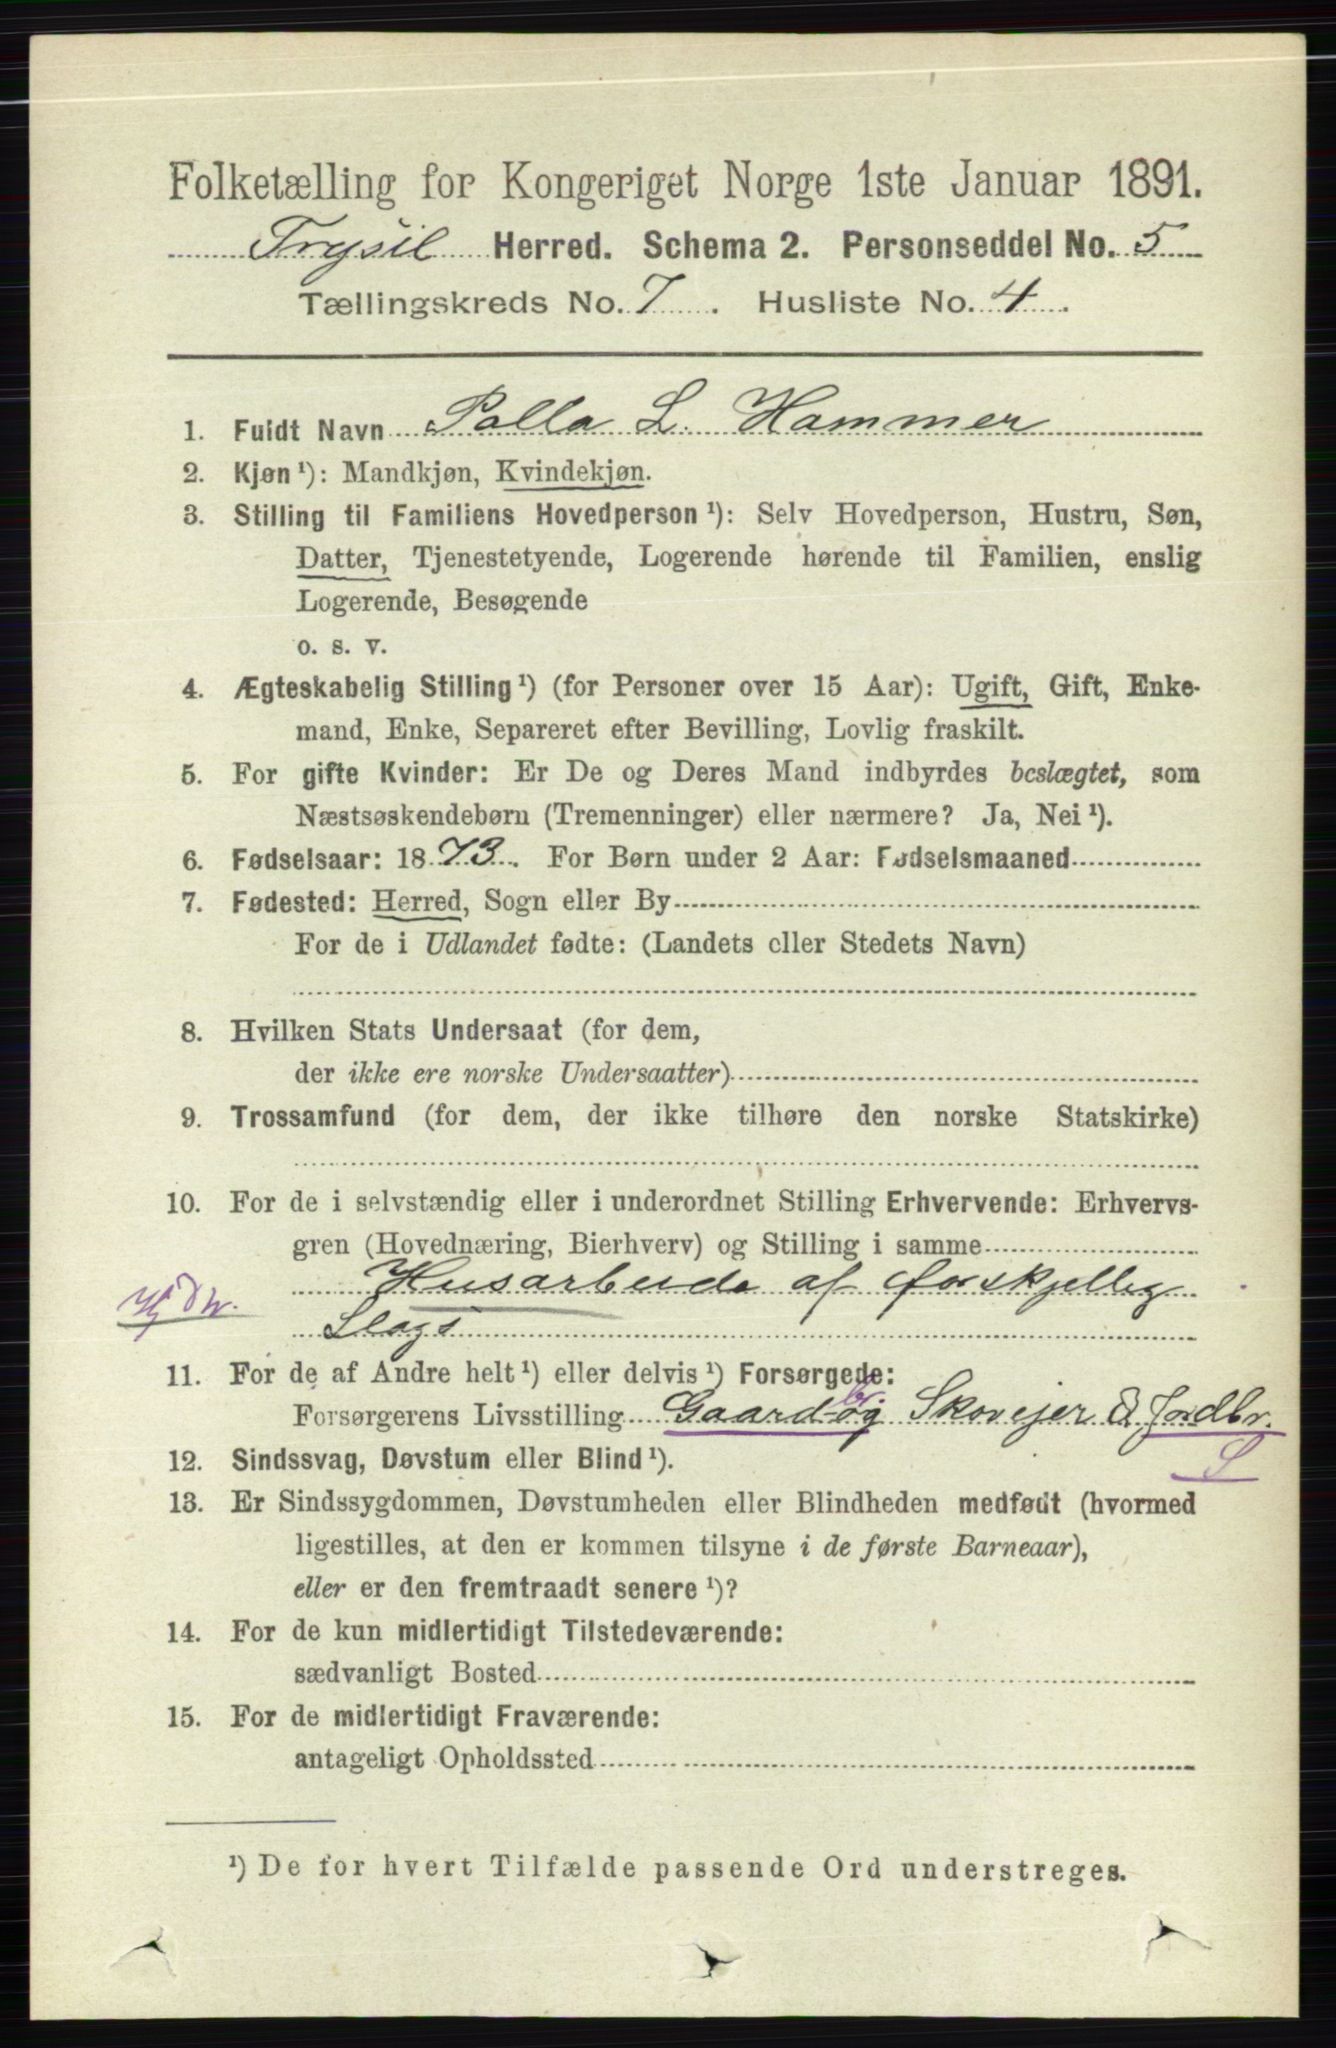 Folketælling for Kongeriget Norge 1ste Januar 1891.
Trysil Herred. Schema 2. Personseddel No. 5
Tællingskreds No. 7. Husliste No. 4.
1. Fuldt Navn Polla L. Hammer
2. Kjøn ¹): Mandkjøn, Kvindekjøn.
3. Stilling til Familiens Hovedperson ¹): Selv Hovedperson, Hustru, Søn,
Datter, Tjenestetyende, Logerende hørende til Familien, enslig
Logerende, Besøgende
o. s. v.
4. Ægteskabelig Stilling ¹) (for Personer over 15 Aar): Ugift, Gift, Enke-
mand, Enke, Separeret efter Bevilling, Lovlig fraskilt.
5. For gifte Kvinder: Er De og Deres Mand indbyrdes beslægtet, som
Næstsøskendebørn (Tremenninger) eller nærmere? Ja, Nei ¹).
6. Fødselsaar: 1873. For Børn under 2 Aar: Fødselsmaaned
7. Fødested: Herred, Sogn eller By
For de i Udlandet fødte: (Landets eller Stedets Navn)
8. Hvilken Stats Undersaat (for dem,
der ikke ere norske Undersaatter)
9. Trossamfund (for dem, der ikke tilhøre den norske Statskirke)
10. For de i selvstændig eller i underordnet Stilling Erhvervende: Erhvervs-
gren (Hovednæring, Bierhverv) og Stilling i samme
Husarbeide af forskjellig
Slags
11. For de af Andre helt ¹) eller delvis ¹) Forsørgede:
Forsørgerens Livsstilling Gaardbr. og Skovejer & Jordbr.
S
12. Sindssvag, Døvstum eller Blind ¹).
13. Er Sindssygdommen, Døvstumheden eller Blindheden medfødt (hvormed
ligestilles, at den er kommen tilsyne i de første Barneaar),
eller er den fremtraadt senere ¹)?
14. For de kun midlertidigt Tilstedeværende:
sædvanligt Bosted
15. For de midlertidigt Fraværende:
antageligt Opholdssted
¹) De for hvert Tilfælde passende Ord understreges.